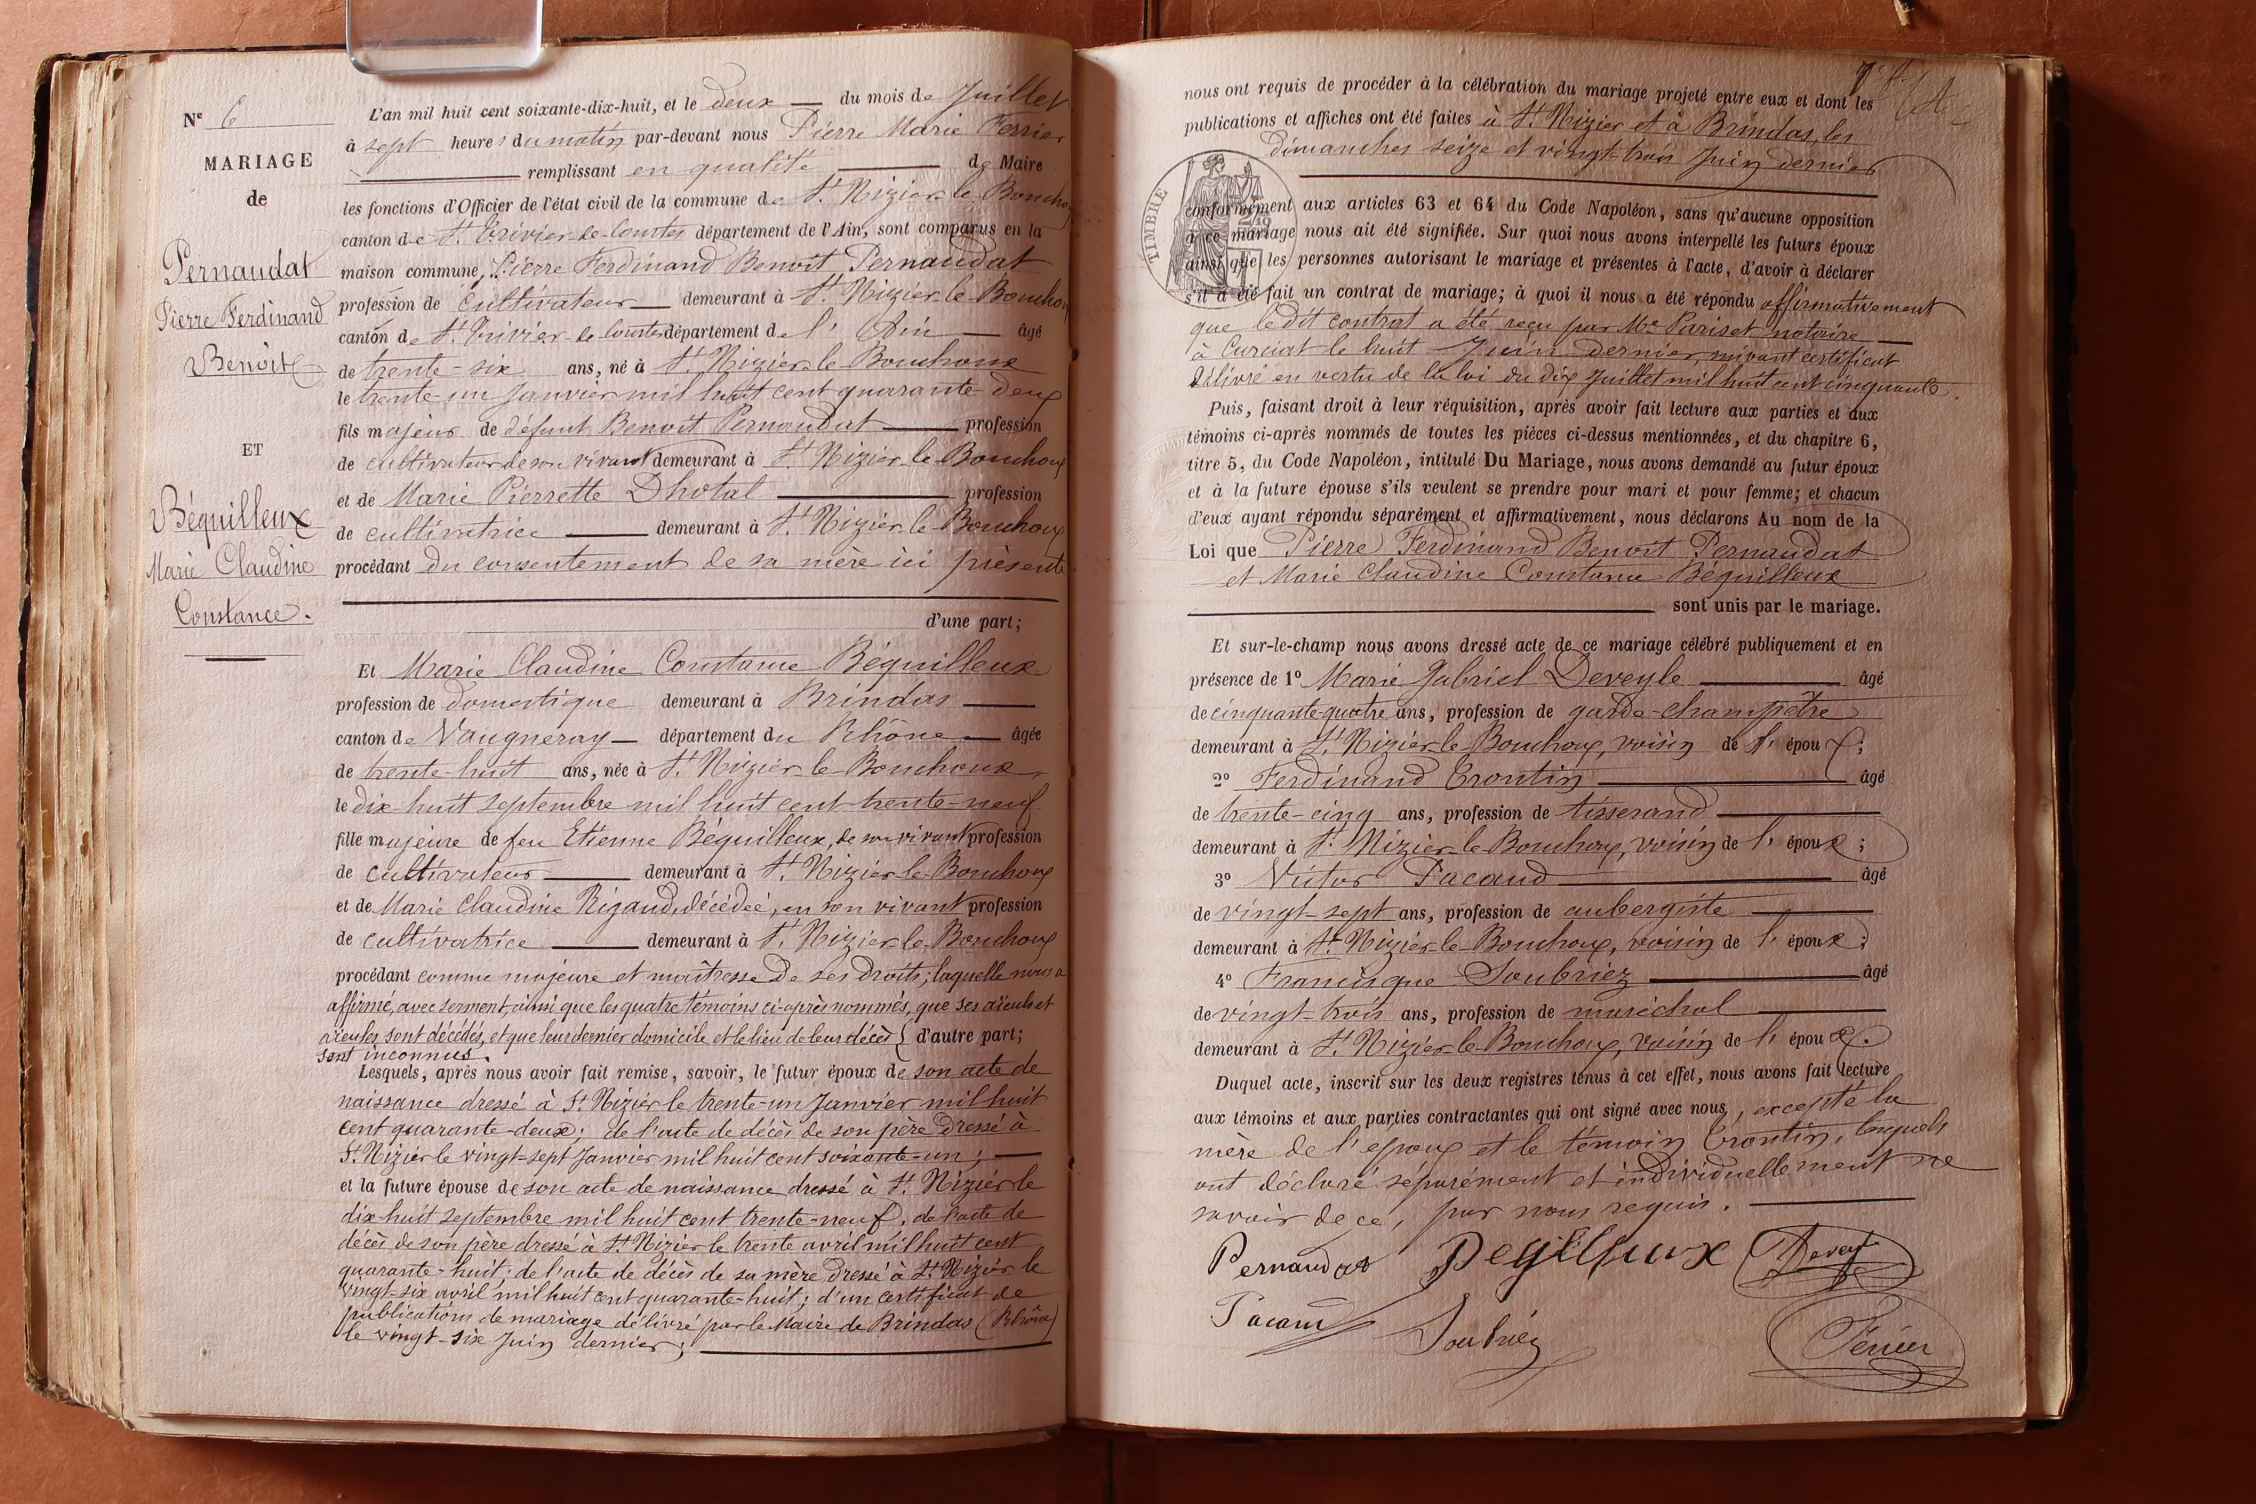 Nº 6
MARIAGE
de
Pernaudat
Pierre Ferdinand
Benoît
ET
Béquilleux
Marie Claudine
Constance.
L'an mil huit cent soixante-dix-huit, et le deux du mois de Juillet
à sept heures du matin par-devant nous Pierre Marie Ferrier
remplissant en qualité de Maire
les fonctions d'Officier de l'état civil de la commune de St Nizier-le-Bouchoux
canton de St Trivier-de-Courtes département de l'Ain, sont comparus en la
maison commune, Pierre Ferdinand Benoît Pernaudat
profession de cultivateur demeurant à St Nizier-le-Bouchoux
canton de St Trivier-de-Courtes département de l'Ain âgé
de trente-six ans, né à St Nizier-le-Bouchoux
le trente-un Janvier mil huit cent quarante-deux
fils majeur de défunt Benoît Pernaudat profession
de cultivateur de son vivant demeurant à St Nizier-le-Bouchoux
et de Marie Pierrette Dhotal profession
de cultivatrice demeurant à St Nizier-le-Bouchoux
procédant du consentement de sa mère ici présente
d'une part;
Et Marie Claudine Constance Béquilleux
profession de domestique demeurant à Brindas
canton de Vaugneray département du Rhône âgée
de trente-huit ans, née à St Nizier-le-Bouchoux,
le dix-huit septembre mil huit cent trente-neuf
fille majeure de feu Etienne Béquilleux, de son vivant profession
de cultivateur demeurant à St Nizier-le-Bouchoux
et de Marie Claudine Rigaud, décédée, en son vivant profession
de cultivatrice demeurant à St Nizier-le-Bouchoux
procédant comme majeure et maîtresse de ses droits; laquelle nous a
affirmé, avec serment, ainsi que les quatre témoins ci-après nommés, que ses aïeuls et
aïeules sont décédés, et que leur dernier domicile et le lieu de leur décès } d'autre part;
sont inconnus.
Lesquels, après nous avoir fait remise, savoir, le futur époux de son acte de
naissance dressé à St Nizier le trente-un Janvier mil huit
cent quarante-deux; de l'acte de décès de son père dressé à
St Nizier le vingt-sept Janvier mil huit cent soixante-un;
et la future épouse de son acte de naissance dressé à St Nizier le
dix-huit septembre mil huit cent trente-neuf, de l'acte de
décès de son père dressé à St Nizier le trente avril mil huit cent
quarante-huit; de l'acte de décès de sa mère dressé à St Nizier le
vingt-six avril mil huit cent quarante-huit; d'un certificat de
publications de mariage délivré par le Maire de Brindas (Rhône)
le vingt-six Juin dernier;
nous ont requis de procéder à la célébration du mariage projeté entre eux et dont les
publications et affiches ont été faites à St Nizier et à Brindas, les
dimanches seize et vingt-trois Juin dernier
TIMBRE
conformément aux articles 63 et 64 du Code Napoléon, sans qu'aucune opposition
à ce mariage nous ait été signifiée. Sur quoi nous avons interpellé les futurs époux
ainsi que les personnes autorisant le mariage et présentes à l'acte, d'avoir à déclarer
s'il a été fait un contrat de mariage; à quoi il nous a été répondu affirmativement
que le dit contrat a été reçu par Me Pariset notaire
à Curciat le huit Juin dernier, suivant certificat
délivré en vertu de la loi du dix Juillet mil huit cent cinquante.
Puis, faisant droit à leur réquisition, après avoir fait lecture aux parties et aux
témoins ci-après nommés de toutes les pièces ci-dessus mentionnées, et du chapitre 6,
titre 5, du Code Napoléon, intitulé Du Mariage, nous avons demandé au futur époux
et à la future épouse s'ils veulent se prendre pour mari et pour femme; et chacun
d'eux ayant répondu séparément et affirmativement, nous déclarons Au nom de la
Loi que Pierre Ferdinand Benoît Pernaudat
et Marie Claudine Constance Béquilleux
sont unis par le mariage.
Et sur-le-champ nous avons dressé acte de ce mariage célébré publiquement et en
présence de 1º Marie Gabriel Deveyle âgé
de cinquante-quatre ans, profession de garde-champêtre
demeurant à St Nizier-le-Bouchoux, voisin de l'époux;
2º Ferdinand Trontin âgé
de trente-cinq ans, profession de tisserand
demeurant à St Nizier-le-Bouchoux, voisin de l'époux;
3º Victor Pacaud âgé
de vingt-sept ans, profession de aubergiste
demeurant à St Nizier-le-Bouchoux, voisin de l'époux;
4º Francisque Soubriez âgé
de vingt-trois ans, profession de maréchal
demeurant à St Nizier-le-Bouchoux, voisin de l'époux.
Duquel acte, inscrit sur les deux registres tenus à cet effet, nous avons fait lecture
aux témoins et aux parties contractantes qui ont signé avec nous, excepté la
mère de l'époux et le témoin Trontin, lesquels
ont déclaré séparément et individuellement ne
savoir de ce, par nous requis.
Pernaudat Begilleux Deveyle
Pacaud Soubriéz Ferrier